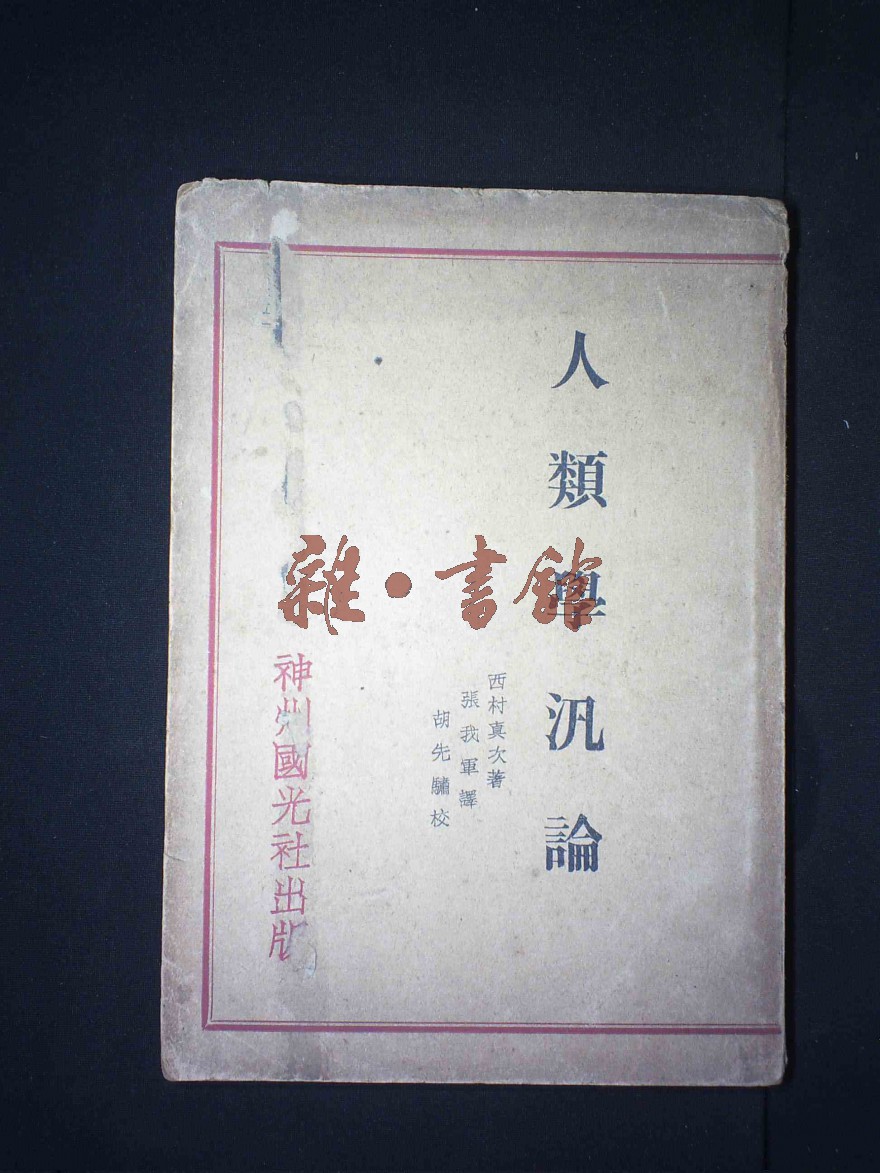 人類學汎論
西村真次著
張我軍譯
胡先驌校
神州國光社出版
雜·書館